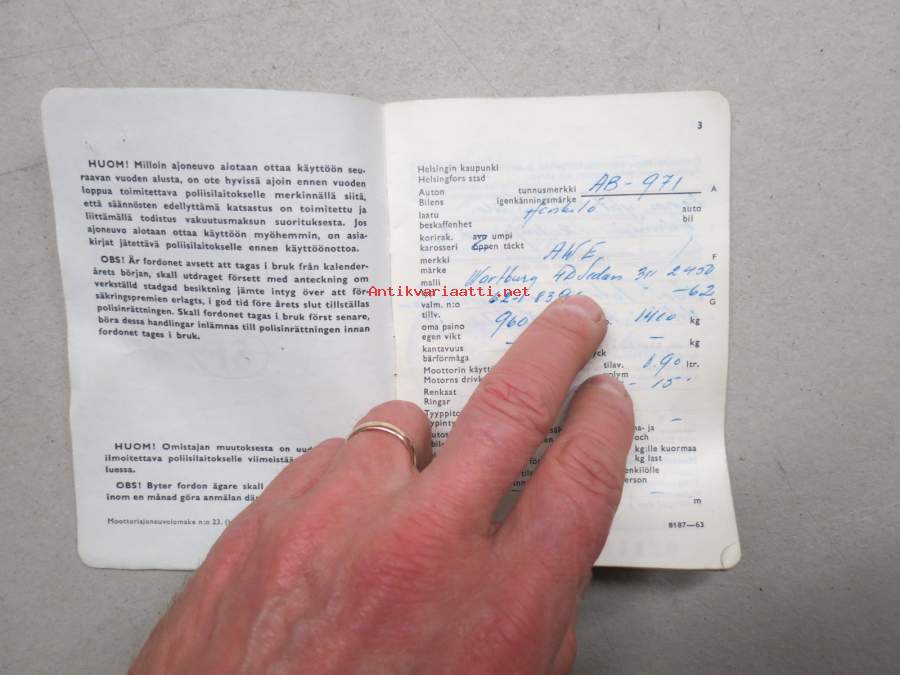 HUOM! Milloin ajoneuvo aiotaan ottaa käyttöön seu-
raavan vuoden alusta, on ote hyvissä ajoin ennen vuoden
loppua toimitettava poliisilaitokselle merkinnällä siitä,
että säännösten edellyttämä katsastus on toimitettu ja
liittämällä todistus vakuutusmaksun suorituksesta. Jos
ajoneuvo aiotaan ottaa käyttöön myöhemmin, on asia-
kirjat jätettävä poliisilaitokselle ennen käyttöönottoa.
OBS! Är fordonet avsett att tagas i bruk från kalender-
årets början, skall utdraget försett med anteckning om
verkställd stadgad besiktning jämte intyg över att för-
säkringspremien erlagts, i god tid före årets slut tillställas
polisinrättningen. Skall fordonet tagas i bruk först senare,
böra dessa handlingar inlämnas till polisinrättningen innan
fordonet tages i bruk.
HUOM! Omistajan muutoksesta on
ilmoitettava poliisilaitokselle
luessa.
OBS! Byter fordon ägare skall
inom en månad göra anmälan
Moottoriajoneuvolomake n:o 23.
3
Helsingin kaupunki
Helsingfors stad
Auton tunnusmerkki AB-971 A
Bilens igenkänningsmärke
laatu Henkilö auto
beskaffenhet bil
korirak. avo umpi
karosseri öppen täckt
merkki AWE F
märke
malli Wartburg 4D Sedan 311 2450
valm. n:o -62
tillv. G
oma paino 960 1400 kg
egen vikt
kantavuus - - kg
bärförmåga
Moottorin tilav. 0.90 ltr.
Motorns
Renkaat - 15
Ringar
-
kg:lle kuormaa
kg last
m
8187—63
Antikvariaatti.net